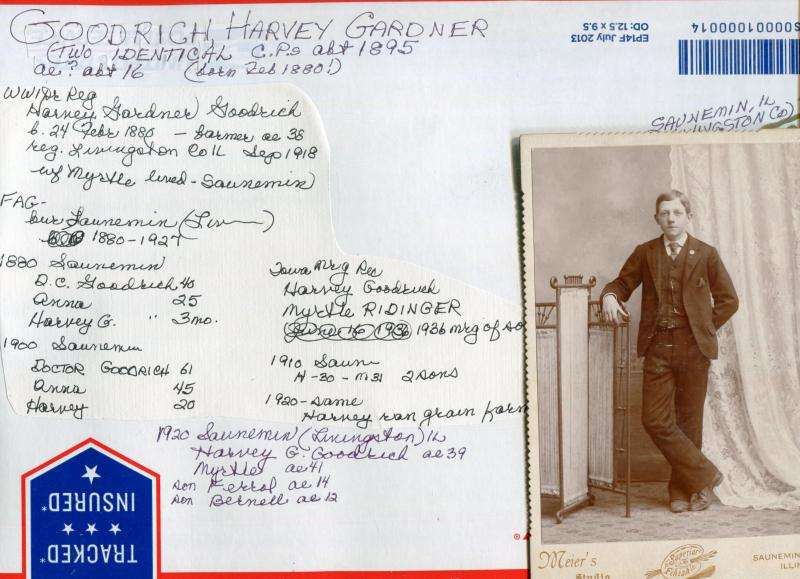 GOODRICH, HARVEY GARDNER
(TWO IDENTICAL C.P.s abt 1895
ae? abt 16 (born Feb 1880!)
EP14F July 2013
OD: 12.5 x 9.5
SAUNEMIN, IL
WW1 Dr Reg
Harvey Gardner Goodrich
b. 24 Febr 1880 - farmer ae 38
reg. Livingston Co IL Sep 1918
wf Myrtle lived - Saunemin
FAG-
bur Saunemin (Liv
1880-1927
1880 Saunemin
D.C. Goodrich 40
Anna 25
Harvey G. " 3 mo.
1900 Saunemin
DOCTOR GOODRICH 61
Anna 45
Harvey 20
Iowa Mrg Rec
Harvey Goodrich
Myrtle RIDINGER
June 16 1936 1936 mrg of so
1910 Saun
H-30 - M31 2 sons
1920 - same
Harvey ran grain farm
1920 Saunemin (Livingston) IL
Harvey G. Goodrich ae 39
Myrtle ae 41
son Ferrol ae 14
son Bernell ae 12
TRACKED*
INSURED*
Meier's
Studio
Superior
Finish
SAUNEMIN
ILLI